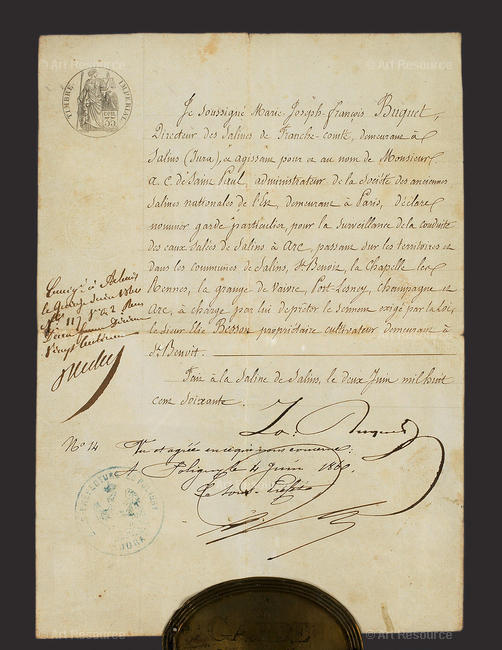 © Art Resource
© Art Resource
TIMBRE IMPERIAL
35
Je soussigné Marie-Joseph-François Buquet,
Directeur des Salines de Franche-comté, demeurant à
Salins (Jura), et agissant pour et au nom de Monsieur
a. C. de Saint Paul, administrateur de la Société des anciennes
salines nationales de l'Est, demeurant à Paris, déclare
nommer garde particulier, pour la surveillance de la conduite
des eaux salées de Salins à Arc, passant sur les territoires et
dans les communes de Salins, St Benoit, la Chapelle les
Rennes, la grange de vaivre, Port-Lesney, champagne et
Arc, à charge par lui de prêter le serment exigé par la loi,
le Sieur Elie Besson propriétaire cultivateur demeurant à
St Benoit.
Fait à la Saline de Salins, le deux Juin mil huit
cent soixante.
Buquet
à Arbois
le
fo 117
N° 14
Vu et agréé en ce qui nous concerne:
A Poligny le 4 Juin 1860.
Le Sous-Préfet
SOUS-PRÉFECTURE DE POLIGNY
JURA
GARDE
© Art Resource
© Art Resource